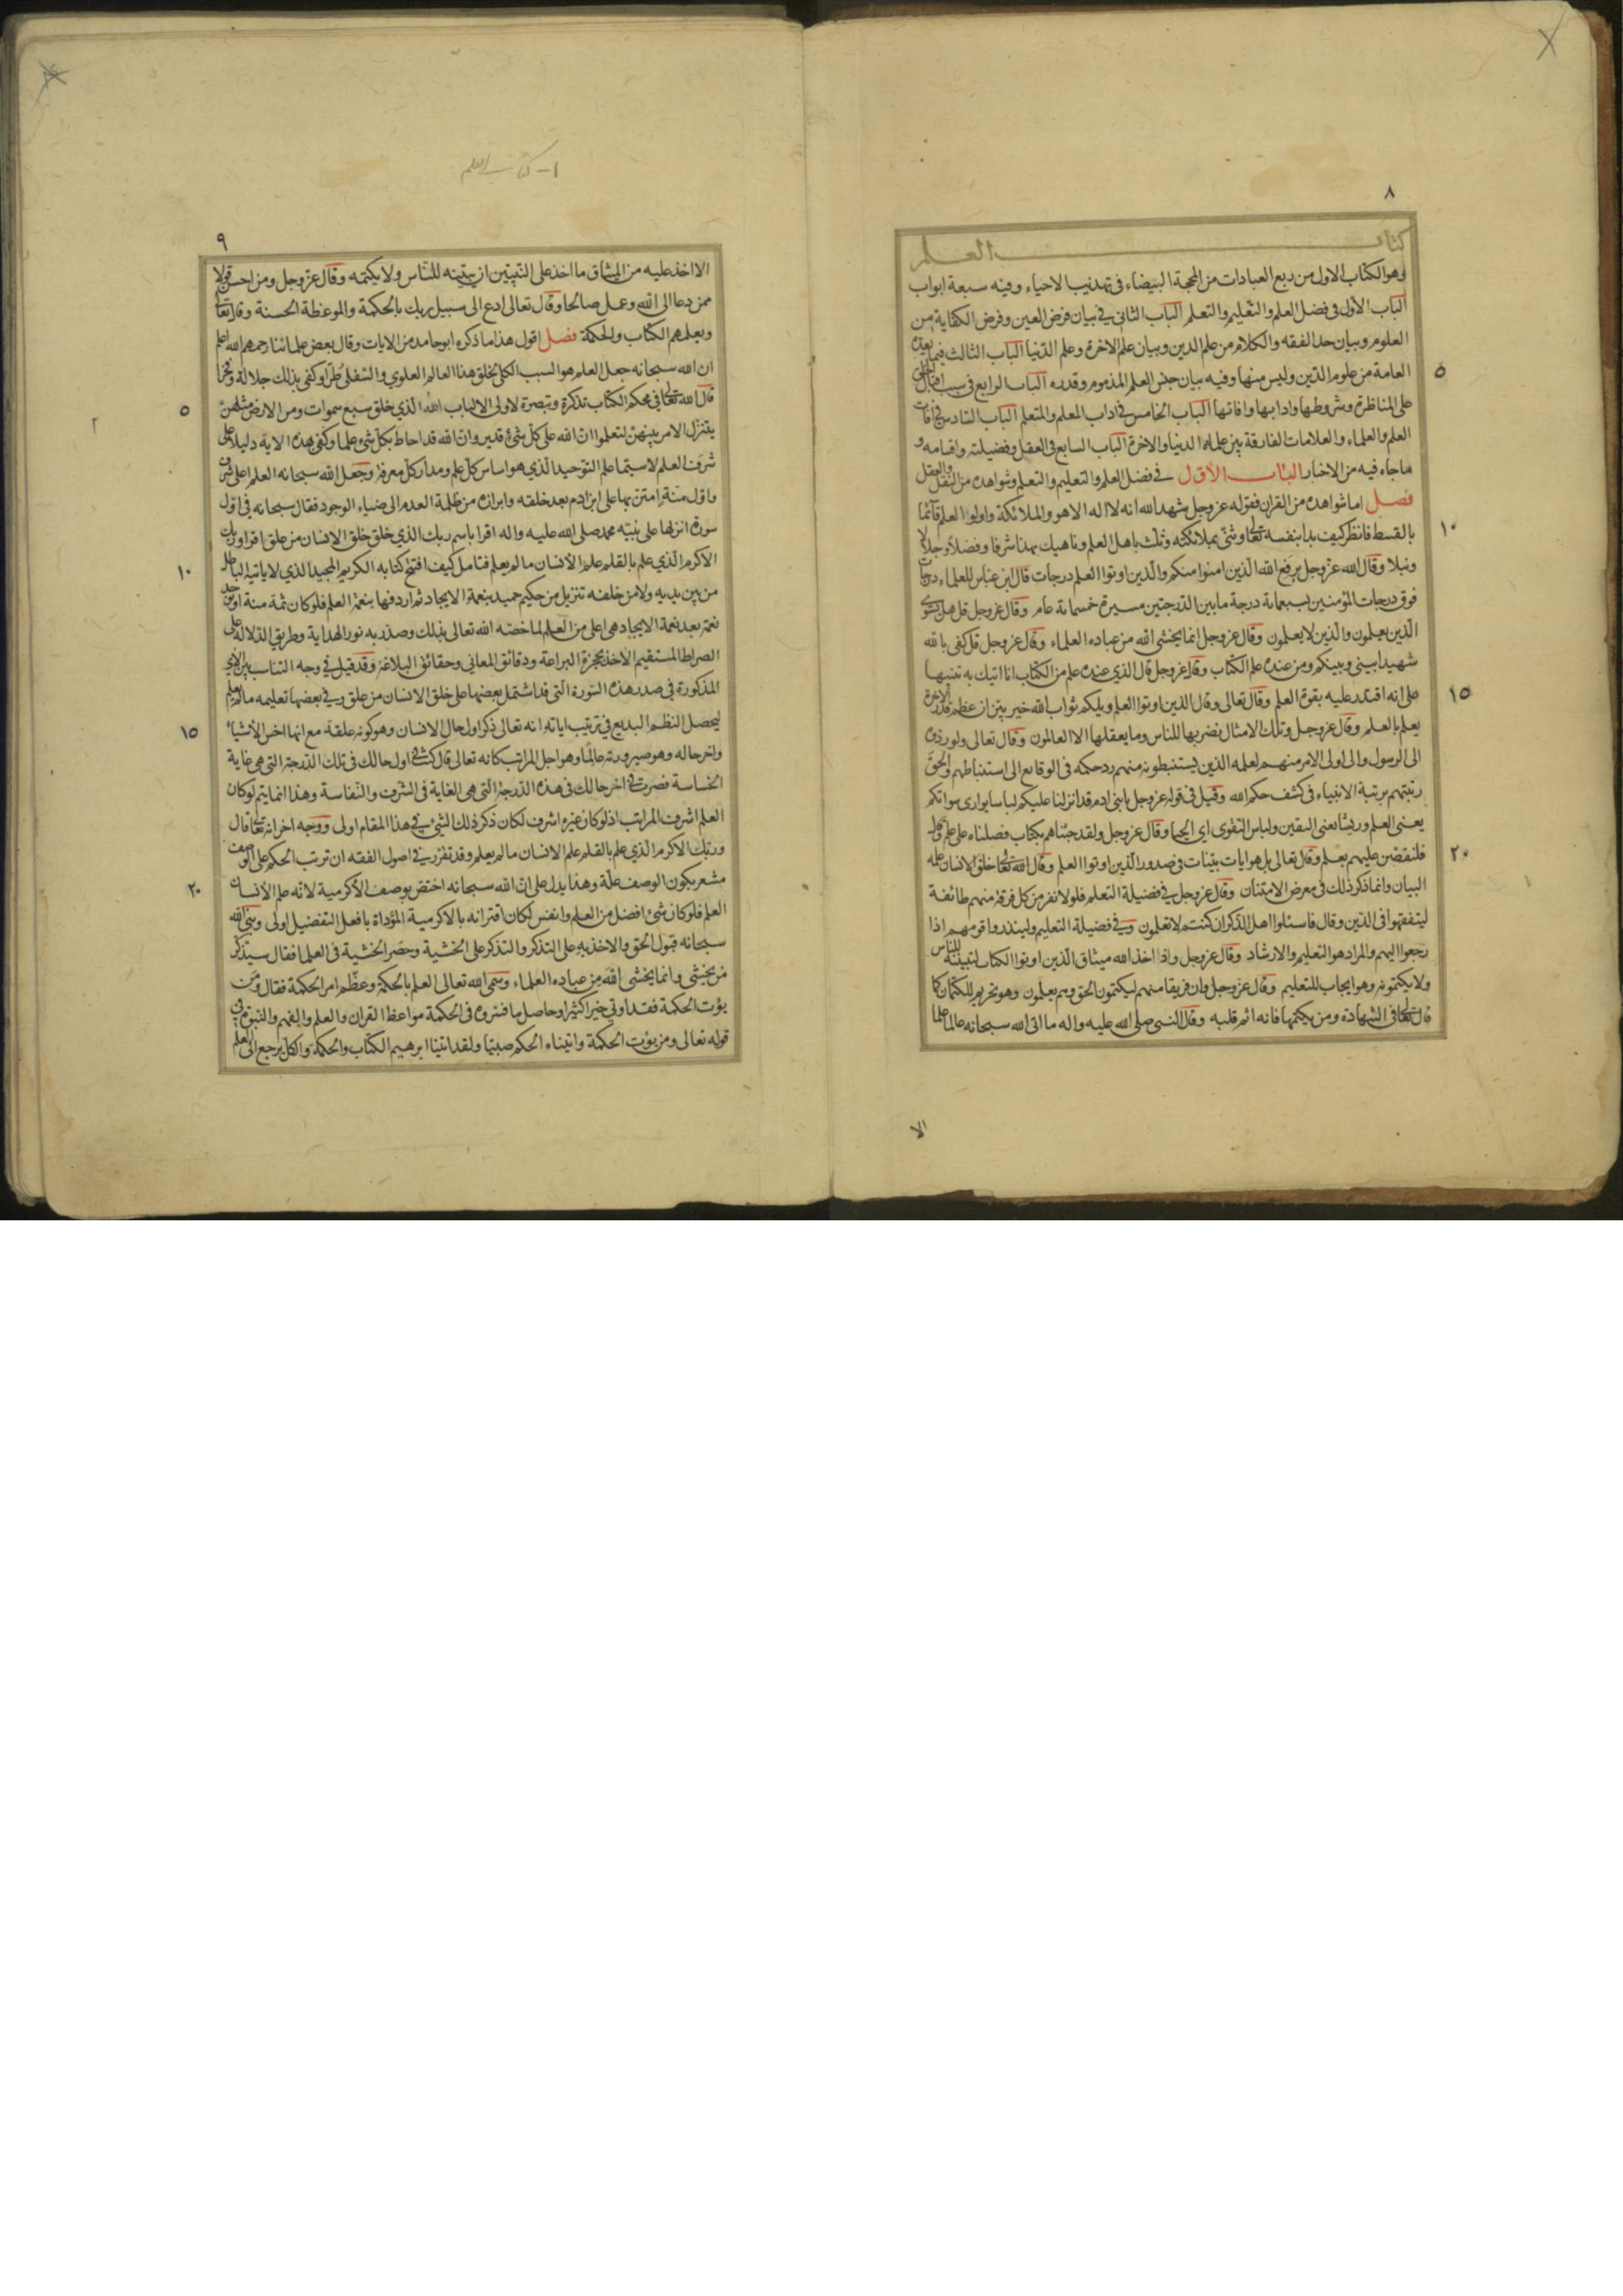 ٨
كتاب العلم
وهو الكتاب الاول من ربع العبادات من المحجة البيضاء في تهذيب الاحياء وفيه سبعة ابواب
الباب الاول في فضل العلم والتعليم والتعلم الباب الثاني في بيان فرض العين وفرض الكفاية من
العلوم وبيان حد الفقه والكلام من علم الدين وبيان علم الاخرة وعلم الدنيا الباب الثالث فيما يعده
العامة من علوم الدين وليس منها وفيه بيان جنس العلم المذموم وقدره الباب الرابع في سبب اقبال الخلق
٥
على المناظرة وشروطها وادابها وافاتها الباب الخامس في اداب المعلم والمتعلم الباب السادس في افات
العلم والعلماء والعلامات الفارقة بين علماء الدنيا والاخرة الباب السابع في العقل وفضيلته واقسامه و
ماجاء فيه من الاخبار الباب الاول في فضل العلم والتعليم والتعلم وشواهده من النقل والعقل
فصل اما شواهده من القران فقوله عز وجل شهد الله انه لا اله الا هو والملائكة واولوا العلم قآئما
بالقسط فانظر كيف بدا بنفسه تعالى وثنى بملائكته وثلث باهل العلم وناهيك بهذا شرفا وفضلا وجلالا
١٠
ونبلا وقال الله عز وجل يرفع الله الذين امنوا منكم والذين اوتوا العلم درجات قال ابن عباس للعلماء درجات
فوق درجات المؤمنين بسبعمائة درجة ما بين الدرجتين مسيرة خمسمائة عام وقال عز وجل قل هل يستوى
الذين يعلمون والذين لا يعلمون وقال عز وجل انما يخشى الله من عباده العلماء وقال عز وجل قل كفى بالله
شهيدا بيني وبينكم ومن عنده علم الكتاب وقال عز وجل قال الذي عنده علم من الكتاب انا اتيك به تنبيها
على انه اقتدر عليه بقوة العلم وقال تعالى وقال الذين اوتوا العلم ويلكم ثواب الله خير بين ان عظم قدر الاخرة
١٥
يعلم بالعلم وقال عز وجل وتلك الامثال نضربها للناس وما يعقلها الا العالمون وقال تعالى ولو ردوه
الى الرسول والى اولى الامر منهم لعلمه الذين يستنبطونه منهم رد حكمه في الوقايع الى استنباطهم والحق
رتبتهم برتبة الانبياء في كشف حكم الله وقيل في قوله عز وجل يا بني ادم قد انزلنا عليكم لباسا يوارى سواتكم
يعنى العلم وريشا يعنى اليقين ولباس التقوى اي الحيا وقال عز وجل ولقد جئناهم بكتاب فصلناه على علم وقال
فلنقصن عليهم بعلم وقال تعالى بل هو ايات بينات في صدور الذين اوتوا العلم وقال الله تعالى خلق الانسان علمه
٢٠
البيان وانما ذكر ذلك في معرض الامتنان وقال عز وجل في فضيلة التعلم فلولا نفر من كل فرقة منهم طائفة
ليتفقهوا في الدين وقال فاسئلوا اهل الذكر ان كنتم لا تعلمون وفي فضيلة التعليم ولينذروا قومهم اذا
رجعوا اليهم والمراد هو التعليم والارشاد وقال عز وجل واذا اخذ الله ميثاق الذين اوتوا الكتاب لتبيننه للناس
ولا يكتمونه وهو ايجاب للتعليم وقال عز وجل وان فريقا منهم ليكتمون الحق وهم يعلمون وهو تحريم للكتمان كما
قال تعالى في الشهادة ومن يكتمها فانه اثم قلبه وقال النبي صلى الله عليه واله ما اتى الله سبحانه عالما علما
الا
١- كتاب العلم
٩
الا اخذ عليه من الميثاق ما اخذ على النبيين ان يبينه للناس ولا يكتمه وقال عز وجل ومن احسن قولا
ممن دعا الى الله وعمل صالحا وقال تعالى ادع الى سبيل ربك بالحكمة والموعظة الحسنة وقال تعالى
ويعلمهم الكتاب والحكمة فصل اقول هذا ما ذكره ابو حامد من الايات وقال بعض علمائنا رحمهم الله اعلم
ان الله سبحانه جعل العلم هو السبب الكلي لخلق هذا العالم العلوي والسفلي طرا وكفى بذلك جلالة وفخرا
قال الله تعالى في محكم الكتاب تذكرة وتبصرة لاولى الالباب الله الذي خلق سبع سموات ومن الارض مثلهن
٥
يتنزل الامر بينهن لتعلموا ان الله على كل شئ قدير وان الله قد احاط بكل شئ علما وكفى بهذه الاية دليلا على
شرف العلم لاسيما علم التوحيد الذي هو اساس كل علم ومدار كل معرفة وجعل الله سبحانه العلم اعلى شرف
واول منة امتن بها على ابن ادم بعد خلقه وابرازه من ظلمة العدم الى ضياء الوجود فقال سبحانه في اول
سورة انزلها على نبيه محمد صلى الله عليه واله اقرا باسم ربك الذي خلق خلق الانسان من علق اقرا وربك
الاكرم الذي علم بالقلم علم الانسان ما لم يعلم فتامل كيف افتتح كتابه الكريم المجيد الذي لا ياتيه الباطل
١٠
من بين يديه ولا من خلفه تنزيل من حكيم حميد بنعمة الايجاد ثم اردفها بنعمة العلم فلو كان ثمة منة او توجد
نعمة بعد نعمة الايجاد هي اعلى من العلم لما خصه الله تعالى بذلك وصدر به نور الهداية وطريق الدلالة على
الصراط المستقيم الاخذ بحجزة البراعة ودقائق المعاني وحقائق البلاغة وقد قيل في وجه التناسب بين الاي
المذكورة في صدر هذه السورة التي قد اشتمل بعضها على خلق الانسان من علق وفي بعضها تعليمه ما لم يعلم
ليحصل النظم البديع في ترتيب اياته انه تعالى ذكر اول حال الانسان وهو كونه علقة مع انها اخس الأشياء
١٥
واخر حاله وهو صيرورته عالما وهو اجل المراتب كانه تعالى قال كنت في اول حالك في تلك الدرجة التي هي غاية
الخساسة فصرت في اخر حالك في هذه الدرجة التي هي الغاية في الشرف والنفاسة وهذا انما يتم لو كان
العلم اشرف المراتب اذ لو كان غيره اشرف لكان ذكر ذلك الشئ في هذا المقام اولى ووجه اخر انه تعالى قال
وربك الاكرم الذي علم بالقلم علم الانسان ما لم يعلم وقد تقرر في اصول الفقه ان ترتب الحكم على الوصف
مشعر بكون الوصف علة وهذا يدل على ان الله سبحانه اختص بوصف الأكرمية لانه علم الانسان
٢٠
العلم فلو كان شئ افضل من العلم وانفس لكان اقترانه بالاكرمية المؤداة بافعل التفضيل اولى وبنى الله
سبحانه قبول الحق والاخذ به على التذكر والتذكر على الخشية وحصر الخشية في العلما فقال سيذكر
من يخشى وانما يخشى الله من عباده العلماء وسمى الله تعالى العلم بالحكمة وعظم امر الحكمة فقال ومن
يؤت الحكمة فقد اوتي خيرا كثيرا وحاصل ما فسروه في الحكمة مواعظ القران والعلم والفهم والنبوة في
قوله تعالى ومن يؤت الحكمة واتيناه الحكم صبيا ولقد اتينا ابرهيم الكتاب والحكمة والكل يرجع الى العلم
٢